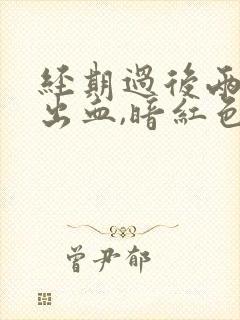 經期過後兩
出血,暗紅色
曾尹郁